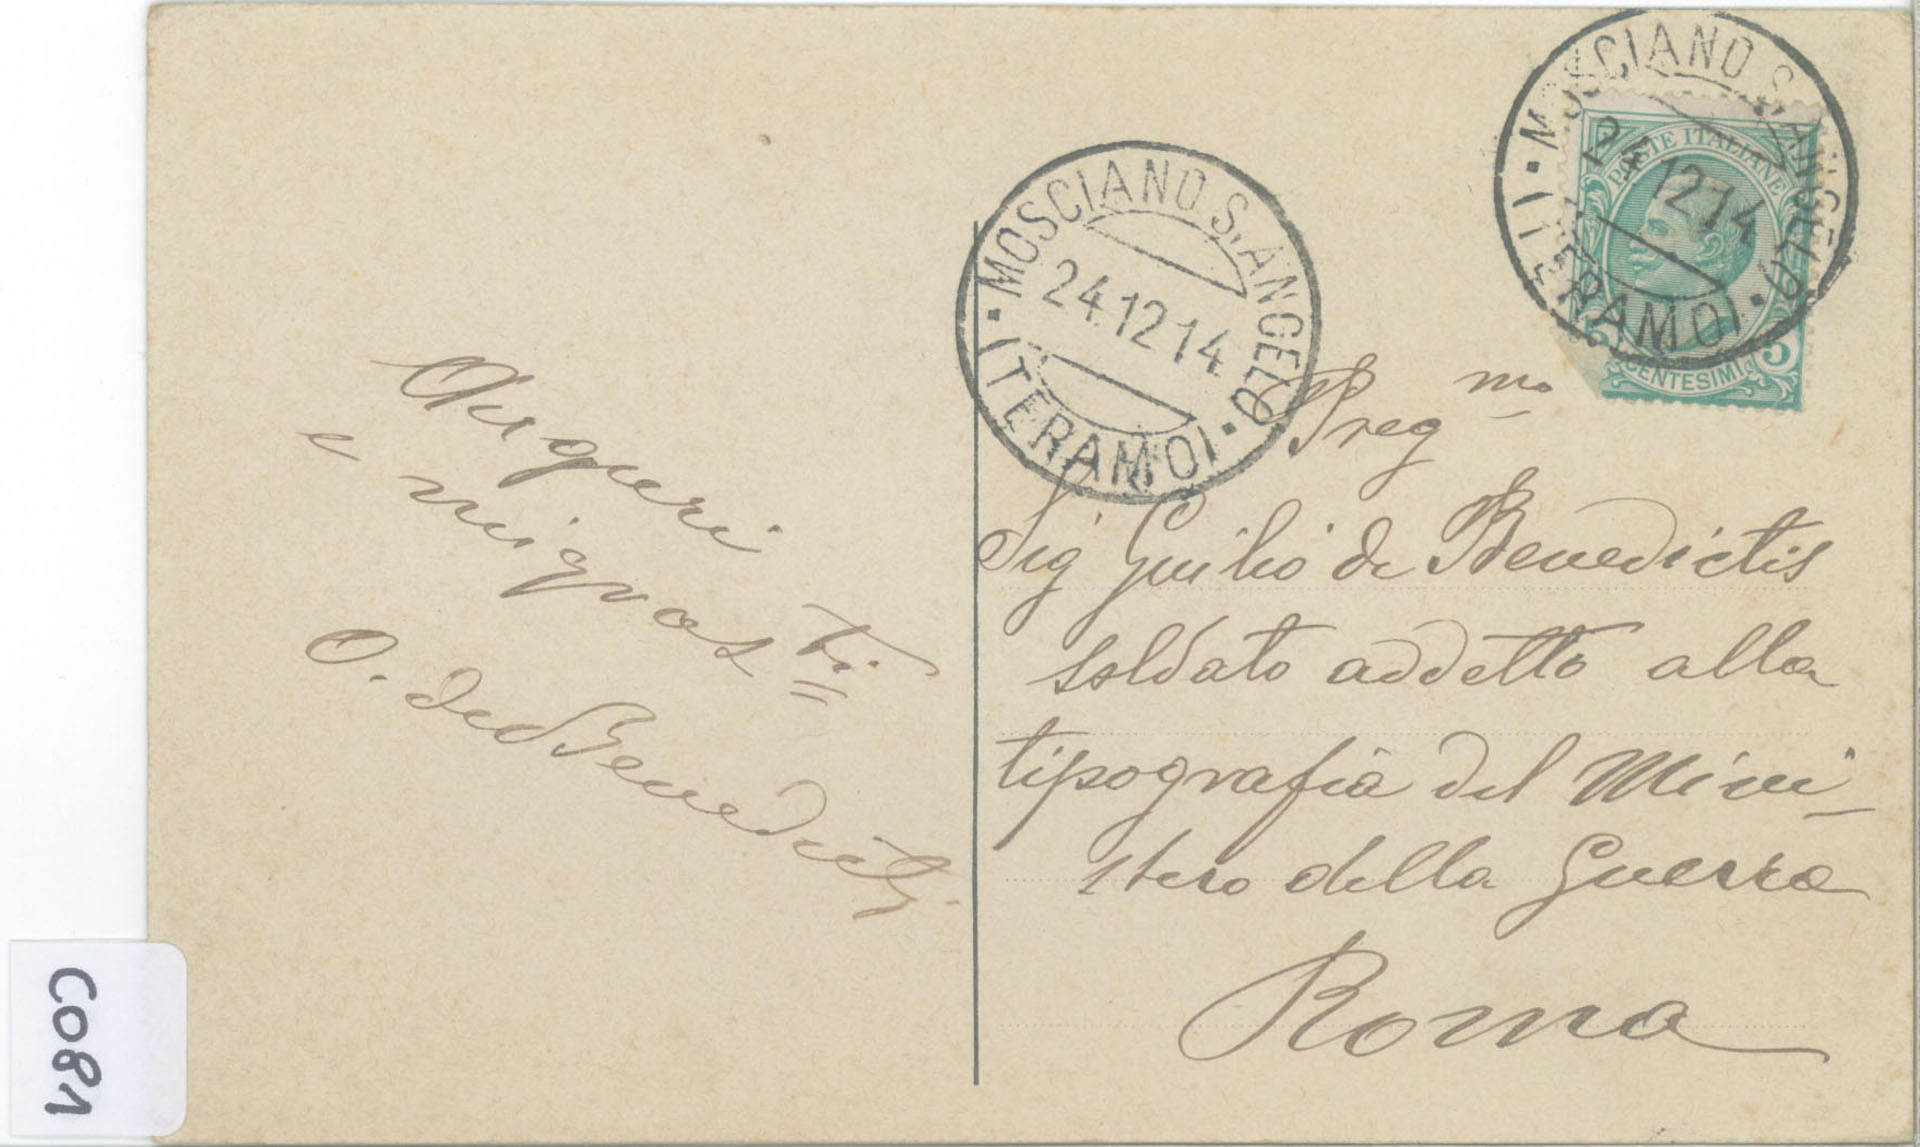 Auguri
e
O. de Benedictis
MOSCIANO S. ANGELO
24.12.14
(TERAMO)
MOSCIANO S. ANGELO
24.12.14
(TERAMO)
POSTE ITALIANE
5
CENTESIMI
Preg mo
Sig Guilio de Benedictis
soldato addetto alla
tipografia del Mini-
stero della Guerra
Roma
C081